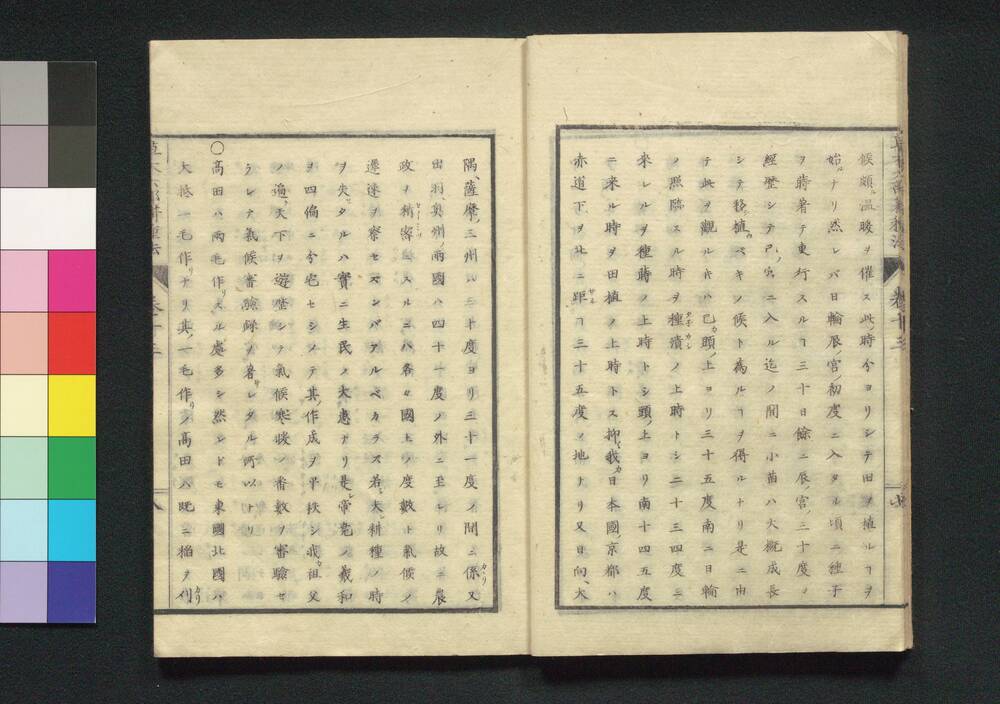 候頗ル温暖ヲ催ス此ノ時分ヨリシテ田ヲ植ルヿヲ
始ルナリ然レバ日輪辰ノ宮ノ初度ニ入タル頃ニ種子
ヲ蒔着テ東行スルヿ三十日餘ニ辰ノ宮ノ三十度ヲ
經歴シテ巳ノ宮ニ入ル迄ノ間ニ小苗ハ大概成長
シテ移植ベキノ候ト為ルヿヲ得ルナリ是ニ由
テ此ヲ觀ルキハ已ガ頭ノ上ヨリ三十五度南ニ日輪
ノ照臨スル時ヲ種漬ノ上時トシ二十三四度ニ
來レルヲ種蒔ノ上時トシ頭ノ上ヨリ南十四五度
ニ来ル時ヲ田植ノ上時トス抑〻我ガ日本國ノ京都ハ
赤道下ヲ北ニ距ヿ三十五度ノ地ナリ又日向、大
隅、薩摩ノ三州ハ三十度ヨリ三十一度ノ間ニ係又
出羽、奥州ノ兩國ハ四十一度ノ外ニ至レリ故ニ農
政ヲ精密ニスルニハ各〻國土ノ度數ト氣候ノ
遅速ヲ察セズンバアルベカラズ若シ夫レ耕種ノ時
ヲ失ヒタルハ實ニ生民ノ大患ナリ是レ帝堯ノ羲、和
ヲ四偏ニ分宅セシメテ其ノ作成ヲ平秩シ我ガ祖父
ノ遍ク天下ヲ遊歴シテ氣候寒暖ノ番數ヲ審驗セ
ラレテ氣候審驗録ヲ著サレタル所以ナリ
○高田ハ兩毛作リスル處多シ然レドモ東國北國ハ
大抵一毛作リナリ其ノ一毛作リノ高田ハ既ニ稲ヲ刈